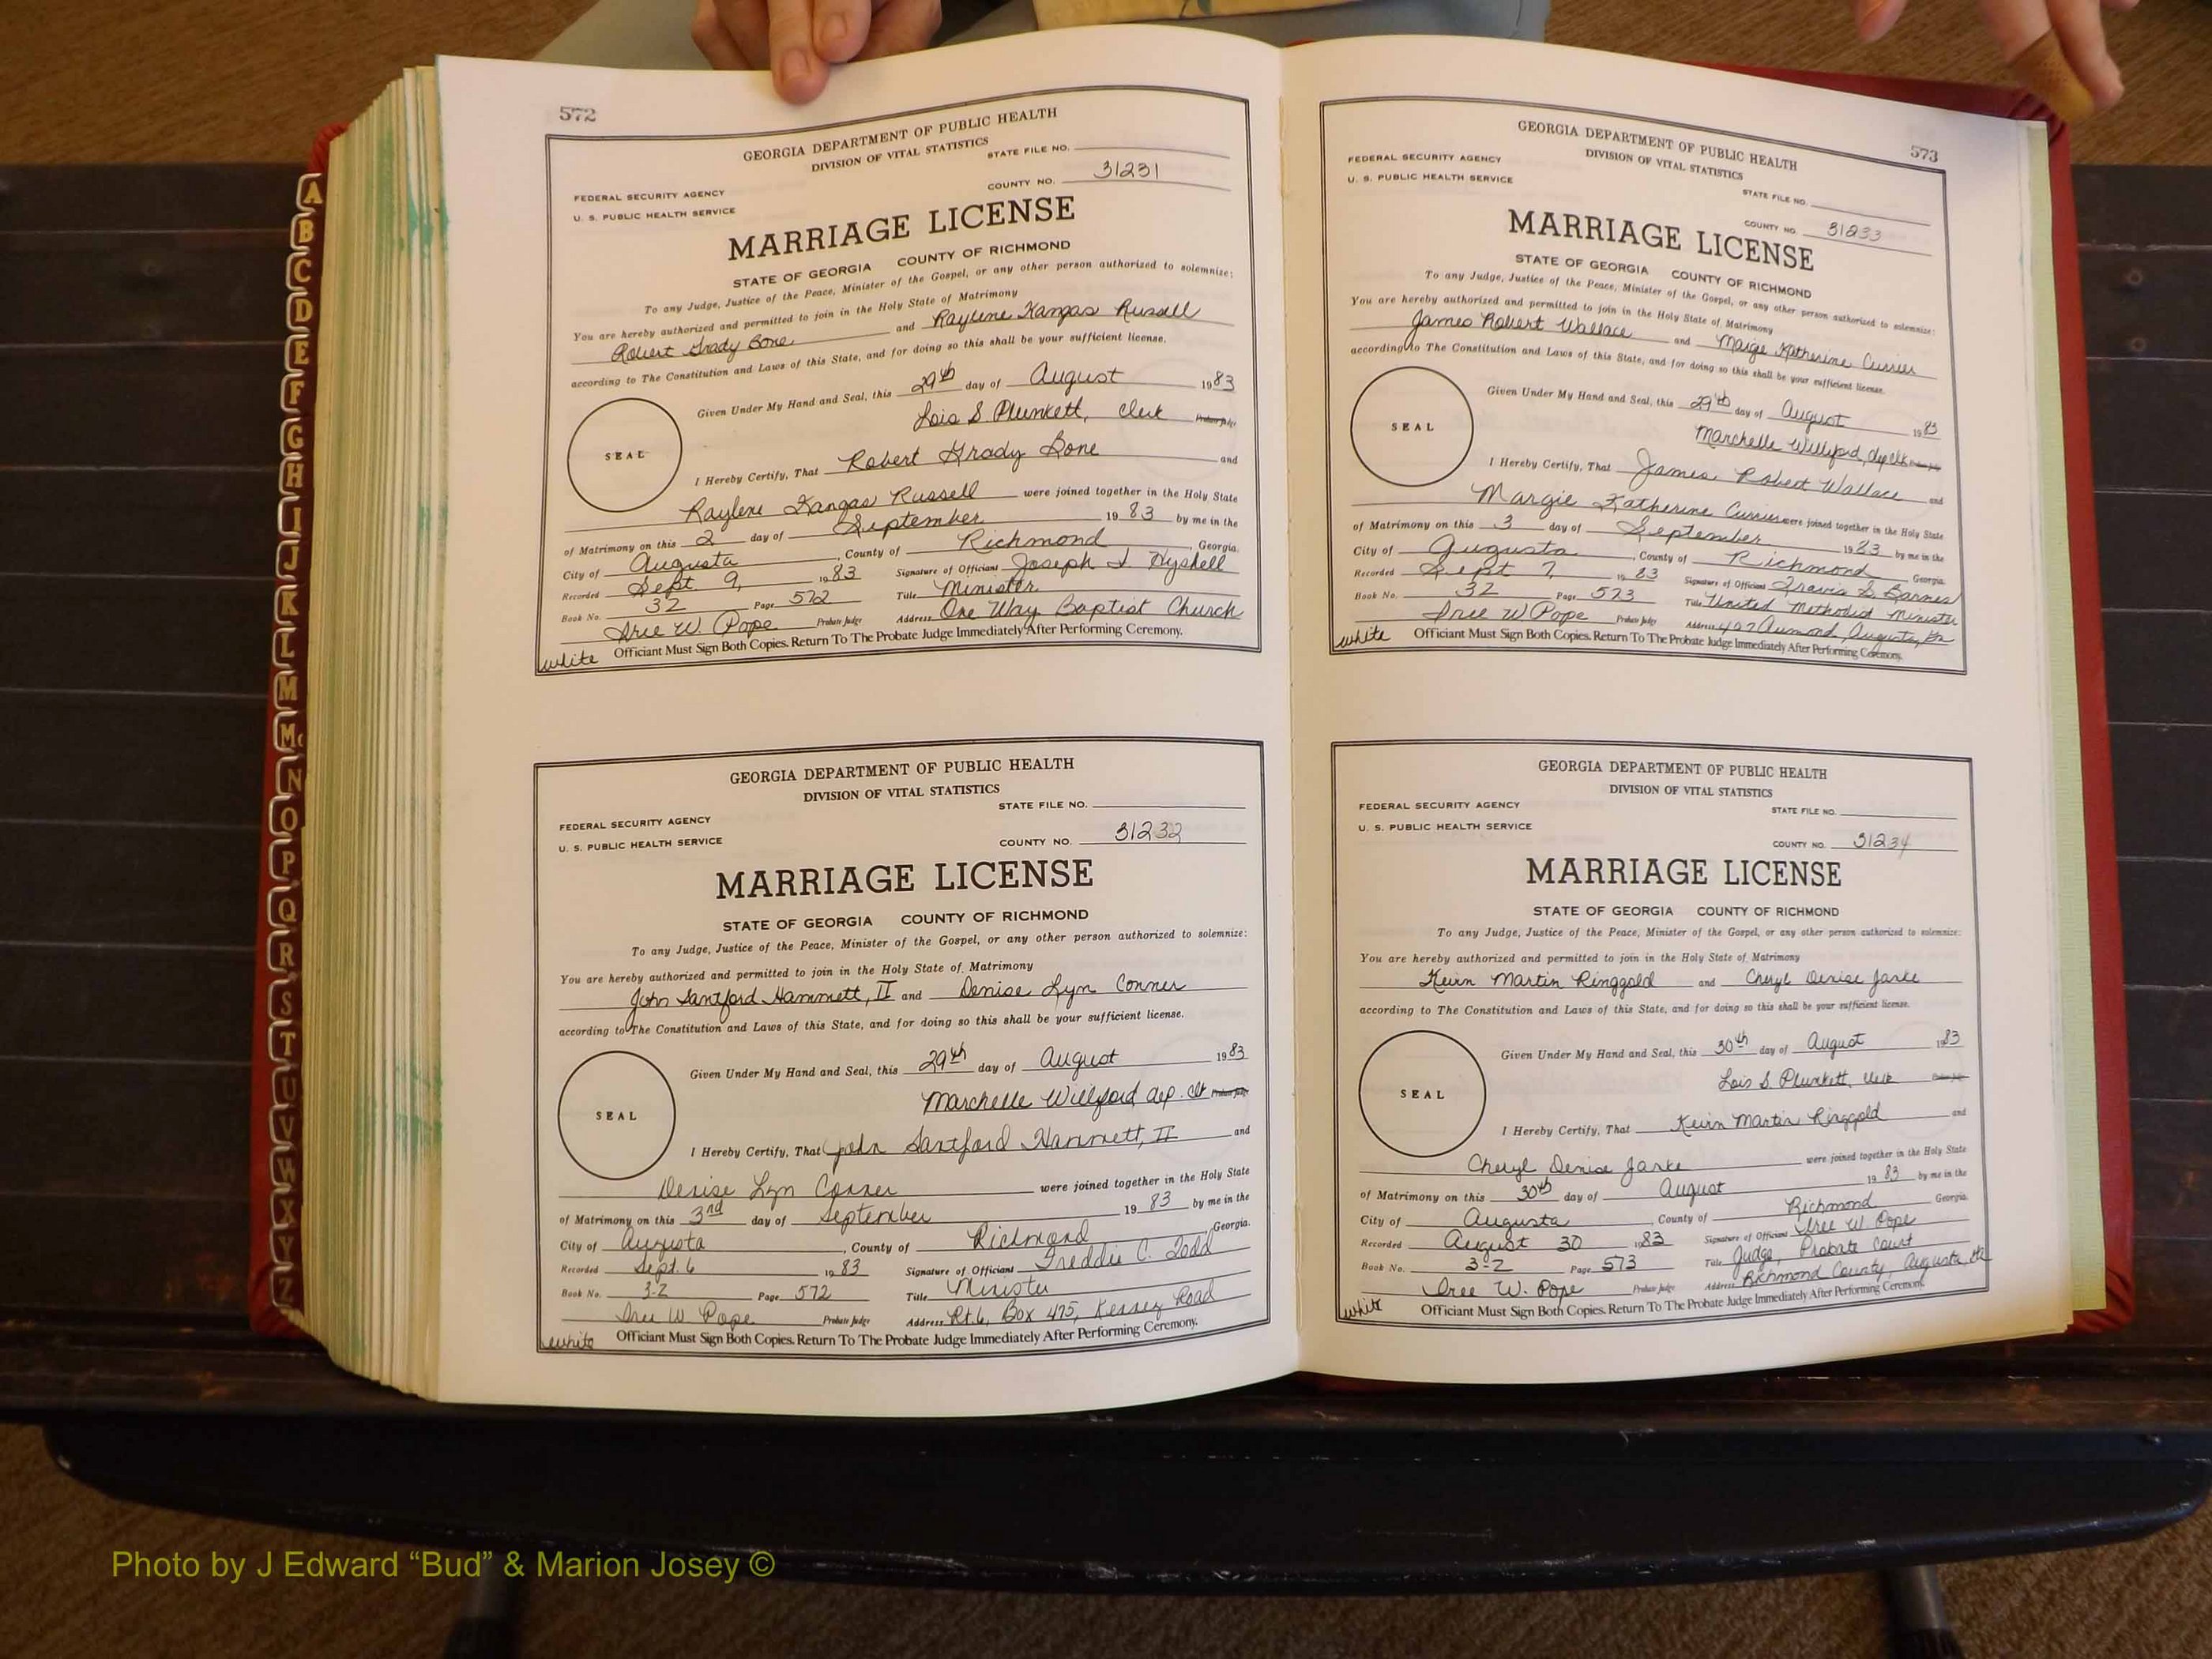 572
GEORGIA DEPARTMENT OF PUBLIC HEALTH
DIVISION OF VITAL STATISTICS
STATE FILE NO.
FEDERAL SECURITY AGENCY
COUNTY NO. 31231
U. S. PUBLIC HEALTH SERVICE
MARRIAGE LICENSE
STATE OF GEORGIA COUNTY OF RICHMOND
To any Judge, Justice of the Peace, Minister of the Gospel, or any other person authorized to solemnize:
You are hereby authorized and permitted to join in the Holy State of Matrimony
Robert Grady Bone and Raylene Kangas Russell
according to The Constitution and Laws of this State, and for doing so this shall be your sufficient license.
Given Under My Hand and Seal, this 29th day of August 1983
Lois S. Plunkett, Clerk Probate Judge
SEAL
I Hereby Certify, That Robert Grady Bone and
Raylene Kangas Russell were joined together in the Holy State
of Matrimony on this 2 day of September 1983 by me in the
City of Augusta, County of Richmond, Georgia.
Recorded Sept. 9, 1983 Signature of Officiant Joseph I Hyshell
Book No. 32 Page 572 Title Minister
Address One Way Baptist Church
W. Pope Probate Judge
white Officiant Must Sign Both Copies. Return To The Probate Judge Immediately After Performing Ceremony.
GEORGIA DEPARTMENT OF PUBLIC HEALTH
DIVISION OF VITAL STATISTICS
STATE FILE NO.
FEDERAL SECURITY AGENCY
COUNTY NO. 31232
U. S. PUBLIC HEALTH SERVICE
MARRIAGE LICENSE
STATE OF GEORGIA COUNTY OF RICHMOND
To any Judge, Justice of the Peace, Minister of the Gospel, or any other person authorized to solemnize:
You are hereby authorized and permitted to join in the Holy State of Matrimony
John Santford Hammett, II and Denise Lyn Conner
according to The Constitution and Laws of this State, and for doing so this shall be your sufficient license.
Given Under My Hand and Seal, this 29th day of August 1983
Marchelle Williford dep. clk Probate Judge
SEAL
I Hereby Certify, That John Santford Hammett, II and
Denise Lyn Conner were joined together in the Holy State
of Matrimony on this 3rd day of September 1983 by me in the
City of Augusta, County of Richmond, Georgia.
Recorded Sept. 6 1983 Signature of Officiant Freddie C. Todd
Book No. 32 Page 572 Title Minister
W Pope Probate Judge Address Rt. 6, Box 475, Road
white Officiant Must Sign Both Copies. Return To The Probate Judge Immediately After Performing Ceremony.
573
GEORGIA DEPARTMENT OF PUBLIC HEALTH
DIVISION OF VITAL STATISTICS
FEDERAL SECURITY AGENCY
U. S. PUBLIC HEALTH SERVICE
STATE FILE NO.
COUNTY NO. 31233
MARRIAGE LICENSE
STATE OF GEORGIA COUNTY OF RICHMOND
To any Judge, Justice of the Peace, Minister of the Gospel, or any other person authorized to solemnize:
You are hereby authorized and permitted to join in the Holy State of Matrimony
James Robert Wallace and Marge Katherine Currier
according to The Constitution and Laws of this State, and for doing so this shall be your sufficient license.
Given Under My Hand and Seal, this 29th day of August 1983
Marchelle Williford, dep clk Probate Judge
SEAL
I Hereby Certify, That James Robert Wallace and
Margie Katherine Currier were joined together in the Holy State
of Matrimony on this 3 day of September 1983 by me in the
City of Augusta, County of Richmond, Georgia.
Recorded Sept 7, 1983 Signature of Officiant Travis S. Barnes
Book No. 32 Page 573 Title United Methodist Minister
W Pope Probate Judge Address Aumond, Augusta, Ga
white Officiant Must Sign Both Copies. Return To The Probate Judge Immediately After Performing Ceremony.
GEORGIA DEPARTMENT OF PUBLIC HEALTH
DIVISION OF VITAL STATISTICS
FEDERAL SECURITY AGENCY
STATE FILE NO.
U. S. PUBLIC HEALTH SERVICE
COUNTY NO. 31234
MARRIAGE LICENSE
STATE OF GEORGIA COUNTY OF RICHMOND
To any Judge, Justice of the Peace, Minister of the Gospel, or any other person authorized to solemnize:
You are hereby authorized and permitted to join in the Holy State of Matrimony
Kevin Martin Ringgold and Cheryl Denise Jarke
according to The Constitution and Laws of this State, and for doing so this shall be your sufficient license.
Given Under My Hand and Seal, this 30th day of August 1983
Lois S. Plunkett, clerk Probate Judge
SEAL
I Hereby Certify, That Kevin Martin Ringgold and
Cheryl Denise Jarke were joined together in the Holy State
of Matrimony on this 30th day of August 1983 by me in the
City of Augusta, County of Richmond Georgia.
Recorded August 30 1983 Signature of Officiant W. Pope
Book No. 32 Page 573 Title Judge, Probate Court
W. Pope Probate Judge Address Richmond County, Augusta, Ga
white Officiant Must Sign Both Copies. Return To The Probate Judge Immediately After Performing Ceremony.
A
B
C
D
E
F
G
H
I
J
K
L
M
Mc
N
O
P
Q
R
S
T
U
V
W
X
Y
Z
Photo by J Edward “Bud” & Marion Josey ©